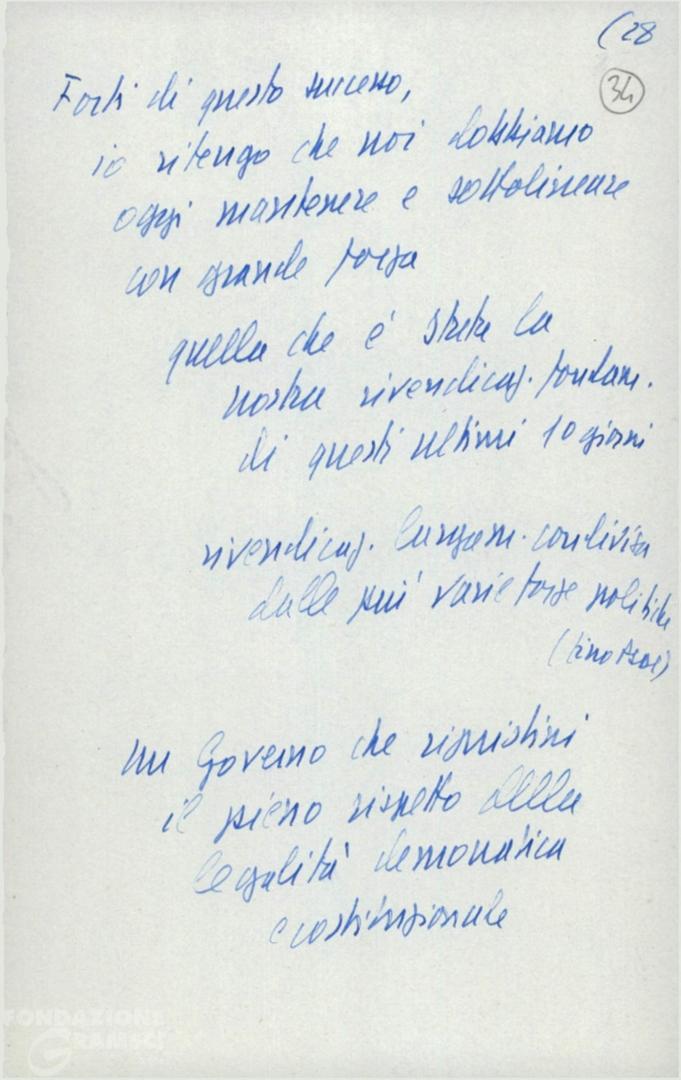 (28
34
Forti di questo successo,
io ritengo che noi dobbiamo
oggi mantenere e sottolineare
con grande forza
quella che è stata la
nostra rivendicaz. fondam.
di questi ultimi 10 giorni
rivendicaz. largam. condivisa
dalle più varie forze politiche
(fino
un Governo che ripristini
il pieno rispetto della
legalità democratica
e costituzionale
FONDAZIONE
GRAMSCI